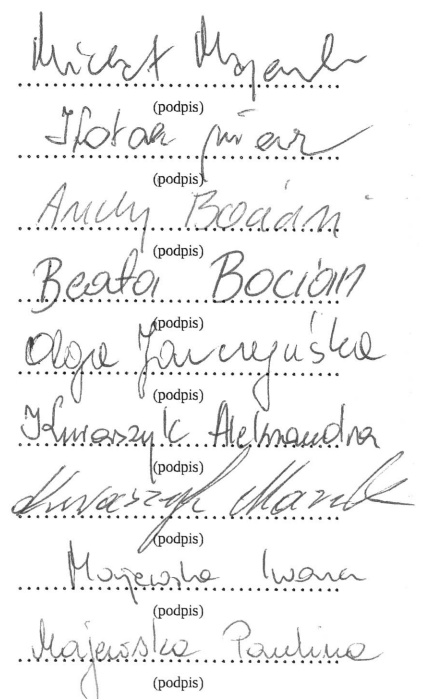 Michał
(podpis)
(podpis)
Bocian
(podpis)
Beata Bocian
(podpis)
Olga
(podpis)
Kwiaszyk Aleksandra
(podpis)
Marek
(podpis)
Majewska Iwona
(podpis)
Majewska Paulina
(podpis)